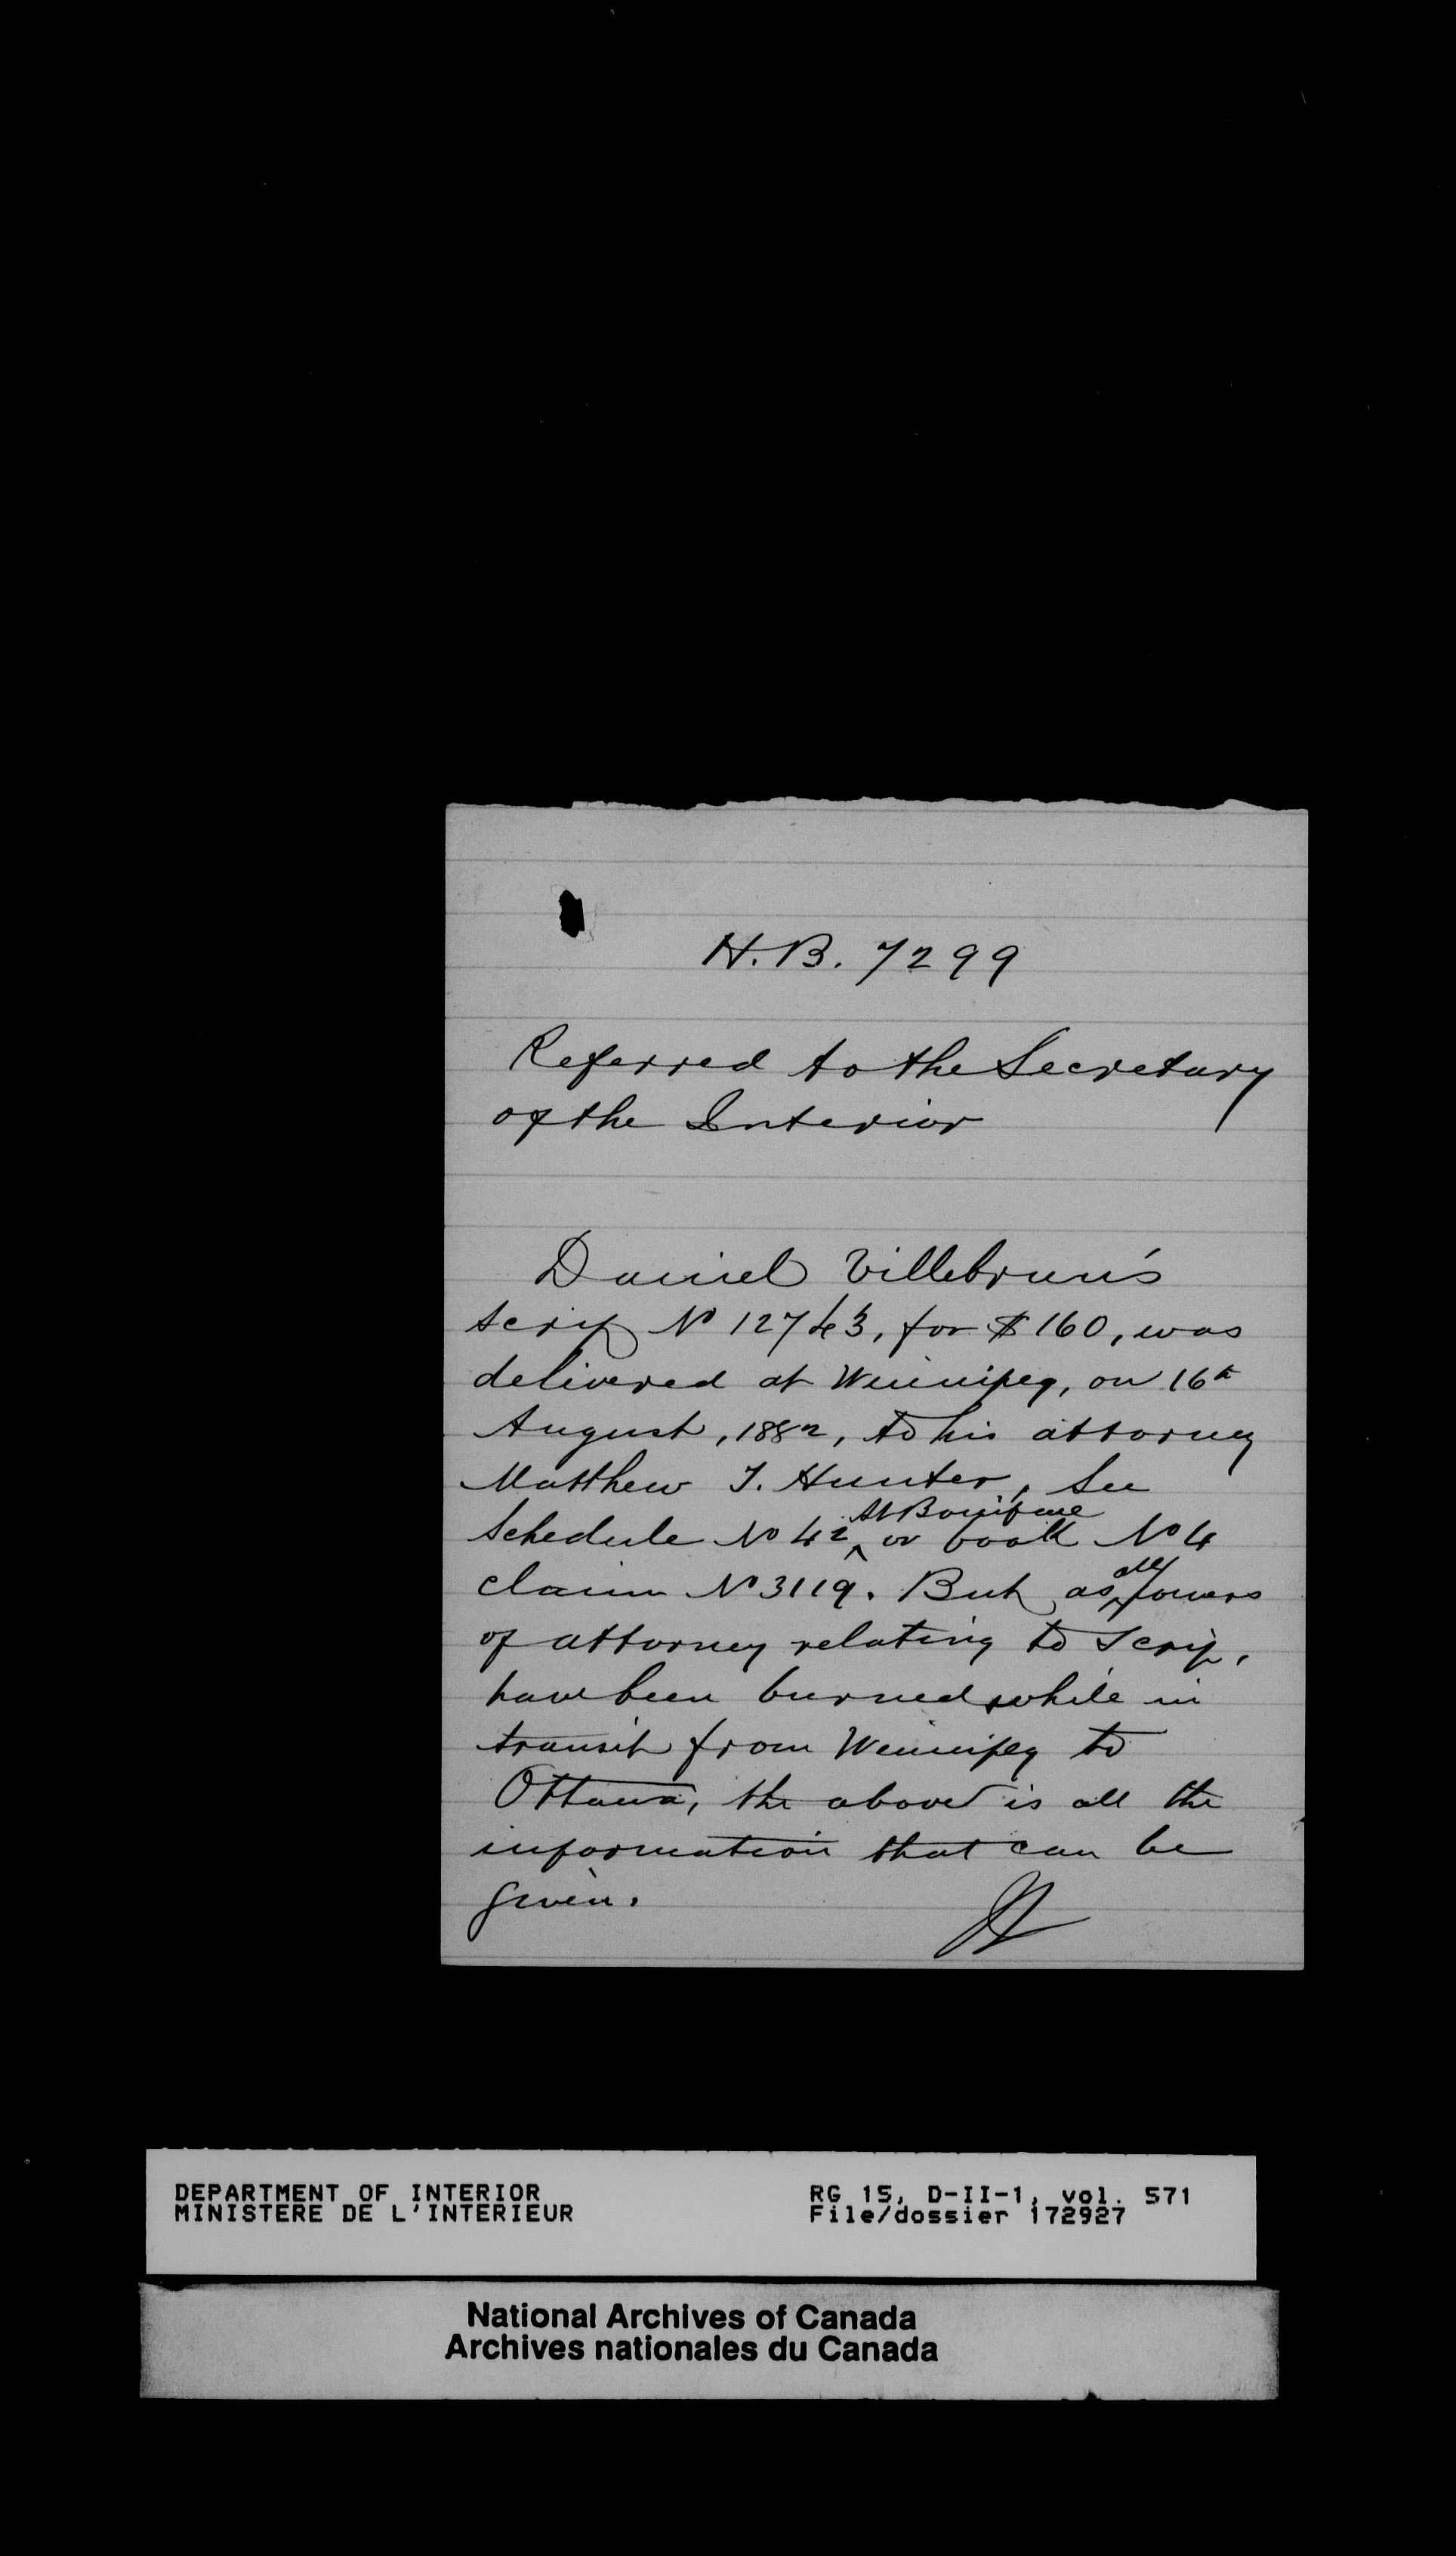 H.B. 7299
Referred to the Secretary
of the Interior
Daniel Villebrun's
scrip No 12743, for $160, was
delivered at Winnipeg, on 16th
August, 1882, to his attorney
Matthew T. Hunter, See
Schedule No 42 St Boniface or book No 4
claim No 3119. But as all powers
of attorney relating to scrip,
have been burned while in
transit from Winnipeg to
Ottawa, the above is all the
information that can be
given.
DEPARTMENT OF INTERIOR
MINISTERE DE L'INTERIEUR
RG 15, D-II-1, vol. 571
File/dossier 172927
National Archives of Canada
Archives nationales du Canada